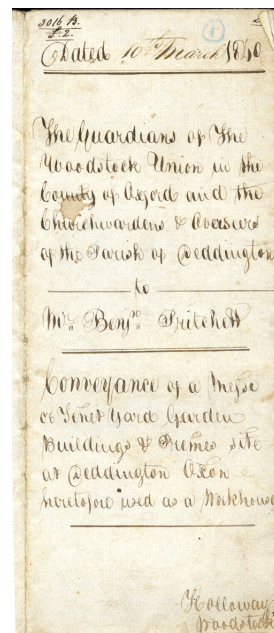 3016 B.
£.2.
1
Dated 10th March 1840
The Guardians of The
Woodstock Union in the
County of Oxford and the
Churchwardens & Overseers
of the Parish of Deddington
to
Mr. Benjn. Pritchett
Conveyance of a Messe
or Tenet Yard Garden
Buildings & Premes site
at Deddington Oxon
heretofore used as a Workhouse
Holloway
Woodstock